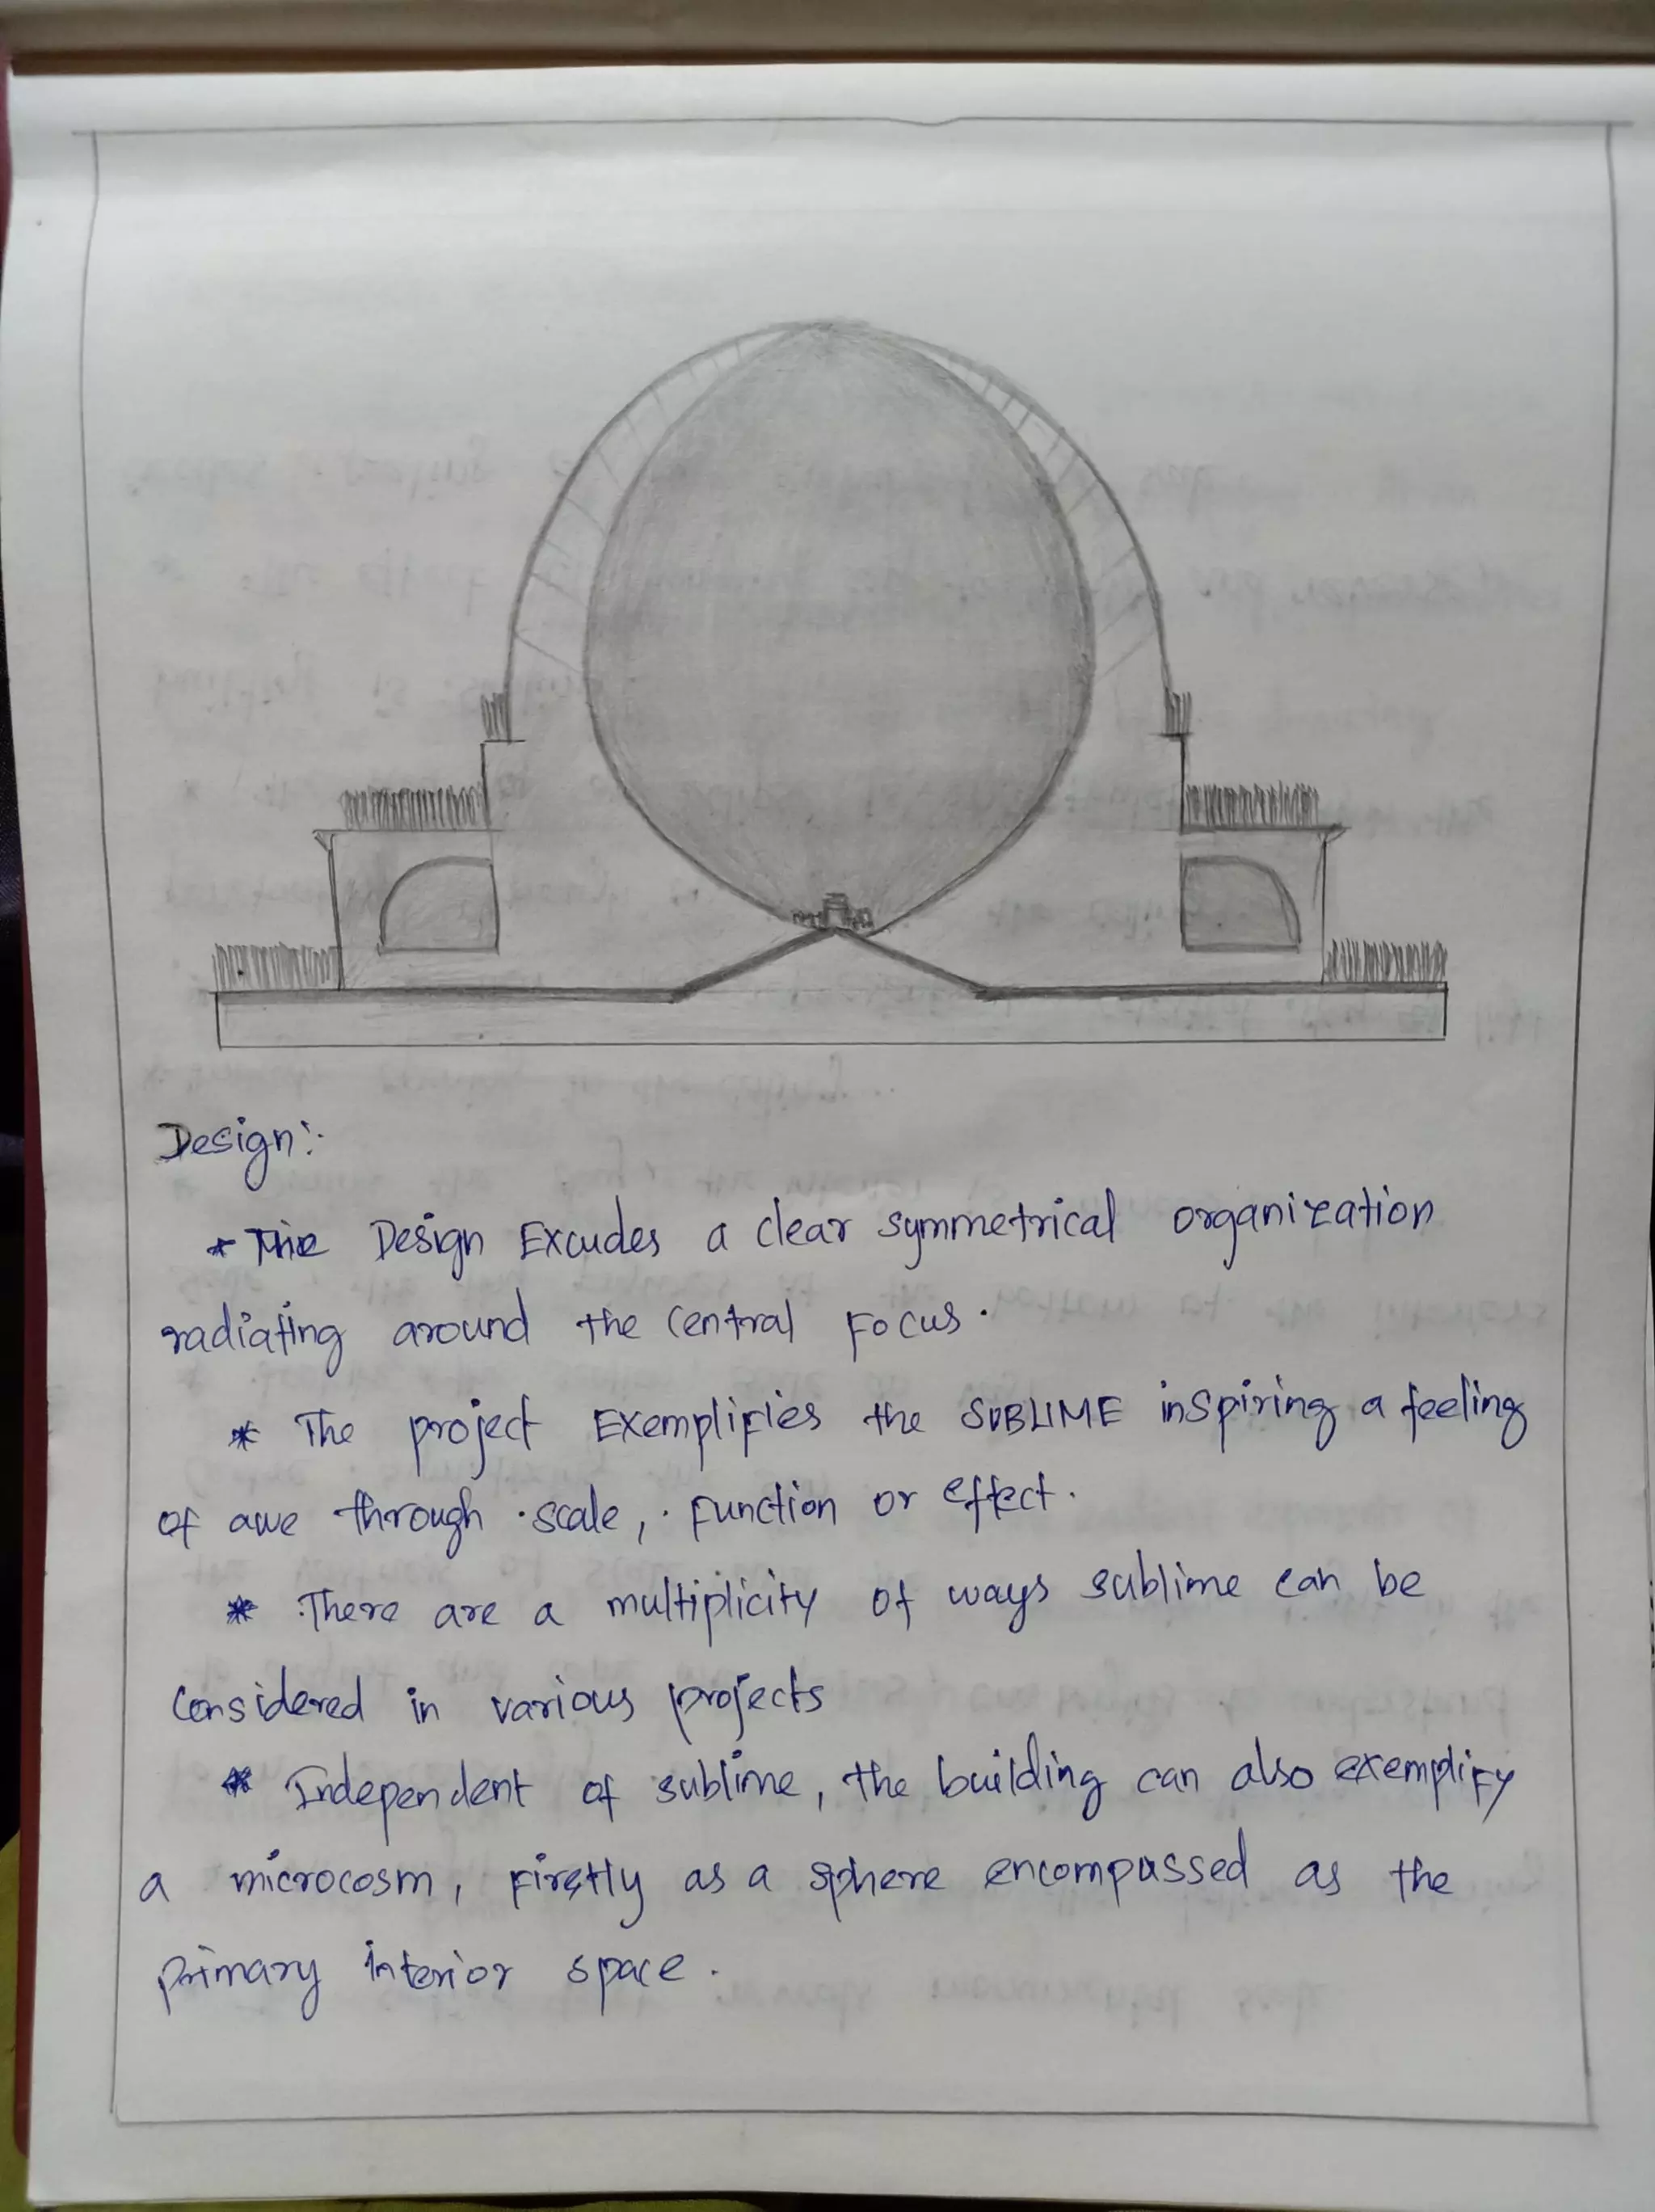 Design:-
* The Design Excudes a clear symmetrical organization
radiating around the central focus.
* The project Exemplifies the SUBLIME inspiring a feeling
of awe through scale, function or effect.
* There are a multiplicity of ways sublime can be
considered in various projects
* Independent of sublime, the building can also exemplify
a microcosm, firstly as a sphere encompassed as the
primary interior space.